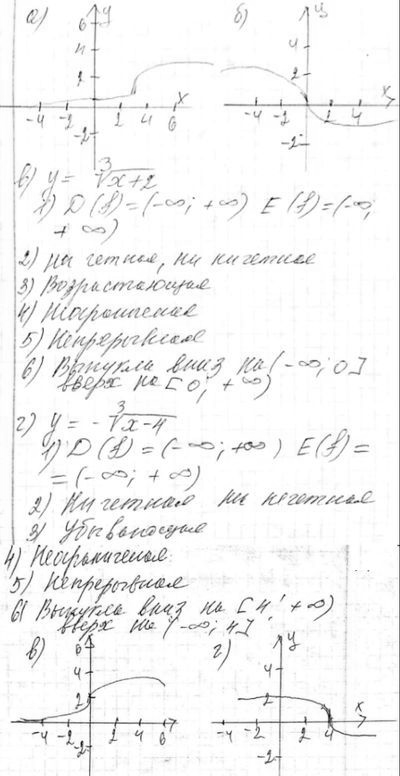 а) у б) у
6
4 4
2 2
-4 -2 2 4 6 х -4 -2 2 4 х
-2 -2
в) y = ∛x+2
1) D(f)=(-∞; +∞) E(f)=(-∞;
+∞)
2) Ни четная, ни нечетная
3) Возрастающая
4) Неограниченая
5) Непрерывная
6) Выпукла вниз на (-∞; 0]
вверх на [0; +∞)
г) y = -∛x-4
1) D(f) = (-∞; +∞) E(f) =
= (-∞; +∞)
2) Ни четная ни нечетная
3) Убывающая
4) Неограниченая
5) Непрерывная
6) Выпукла вниз на [4; +∞)
вверх на (-∞; 4]
в) 6 г) у
4 4
2 2
-4 -2 2 4 6 -4 -2 2 4 х
-2 -2